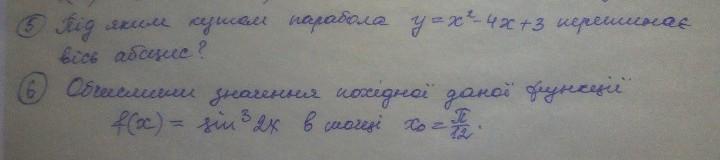 5 Під яким кутом парабола y = x² - 4x + 3 перетинає
вісь абсцис?
6 Обчислити значення похідної даної функції
f(x) = sin³ 2x в точці x₀ = π/12.